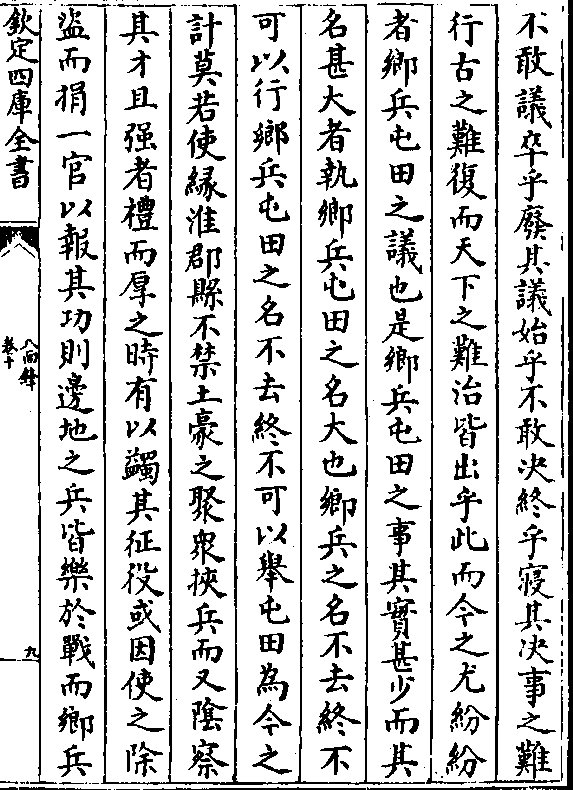 不敢議卒乎廢其議始乎不敢决終乎寝其决事之難
行古之難復而天下之難治皆出乎此而今之尤紛紛
者鄉兵屯田之議也是鄉兵屯田之事其實甚少而其
名甚大者執鄉兵屯田之名大也鄉兵之名不去終不
可以行鄉兵屯田之名不去終不可以舉屯田為今之
計莫若使縁淮郡縣不禁土豪之聚衆挾兵而又隂察
其才且强者禮而厚之時有以蠲其征役或因使之除
盜而捐一官以報其功則邊地之兵皆樂於戰而鄉兵
欽定四庫全書
八面鋒
卷十
九